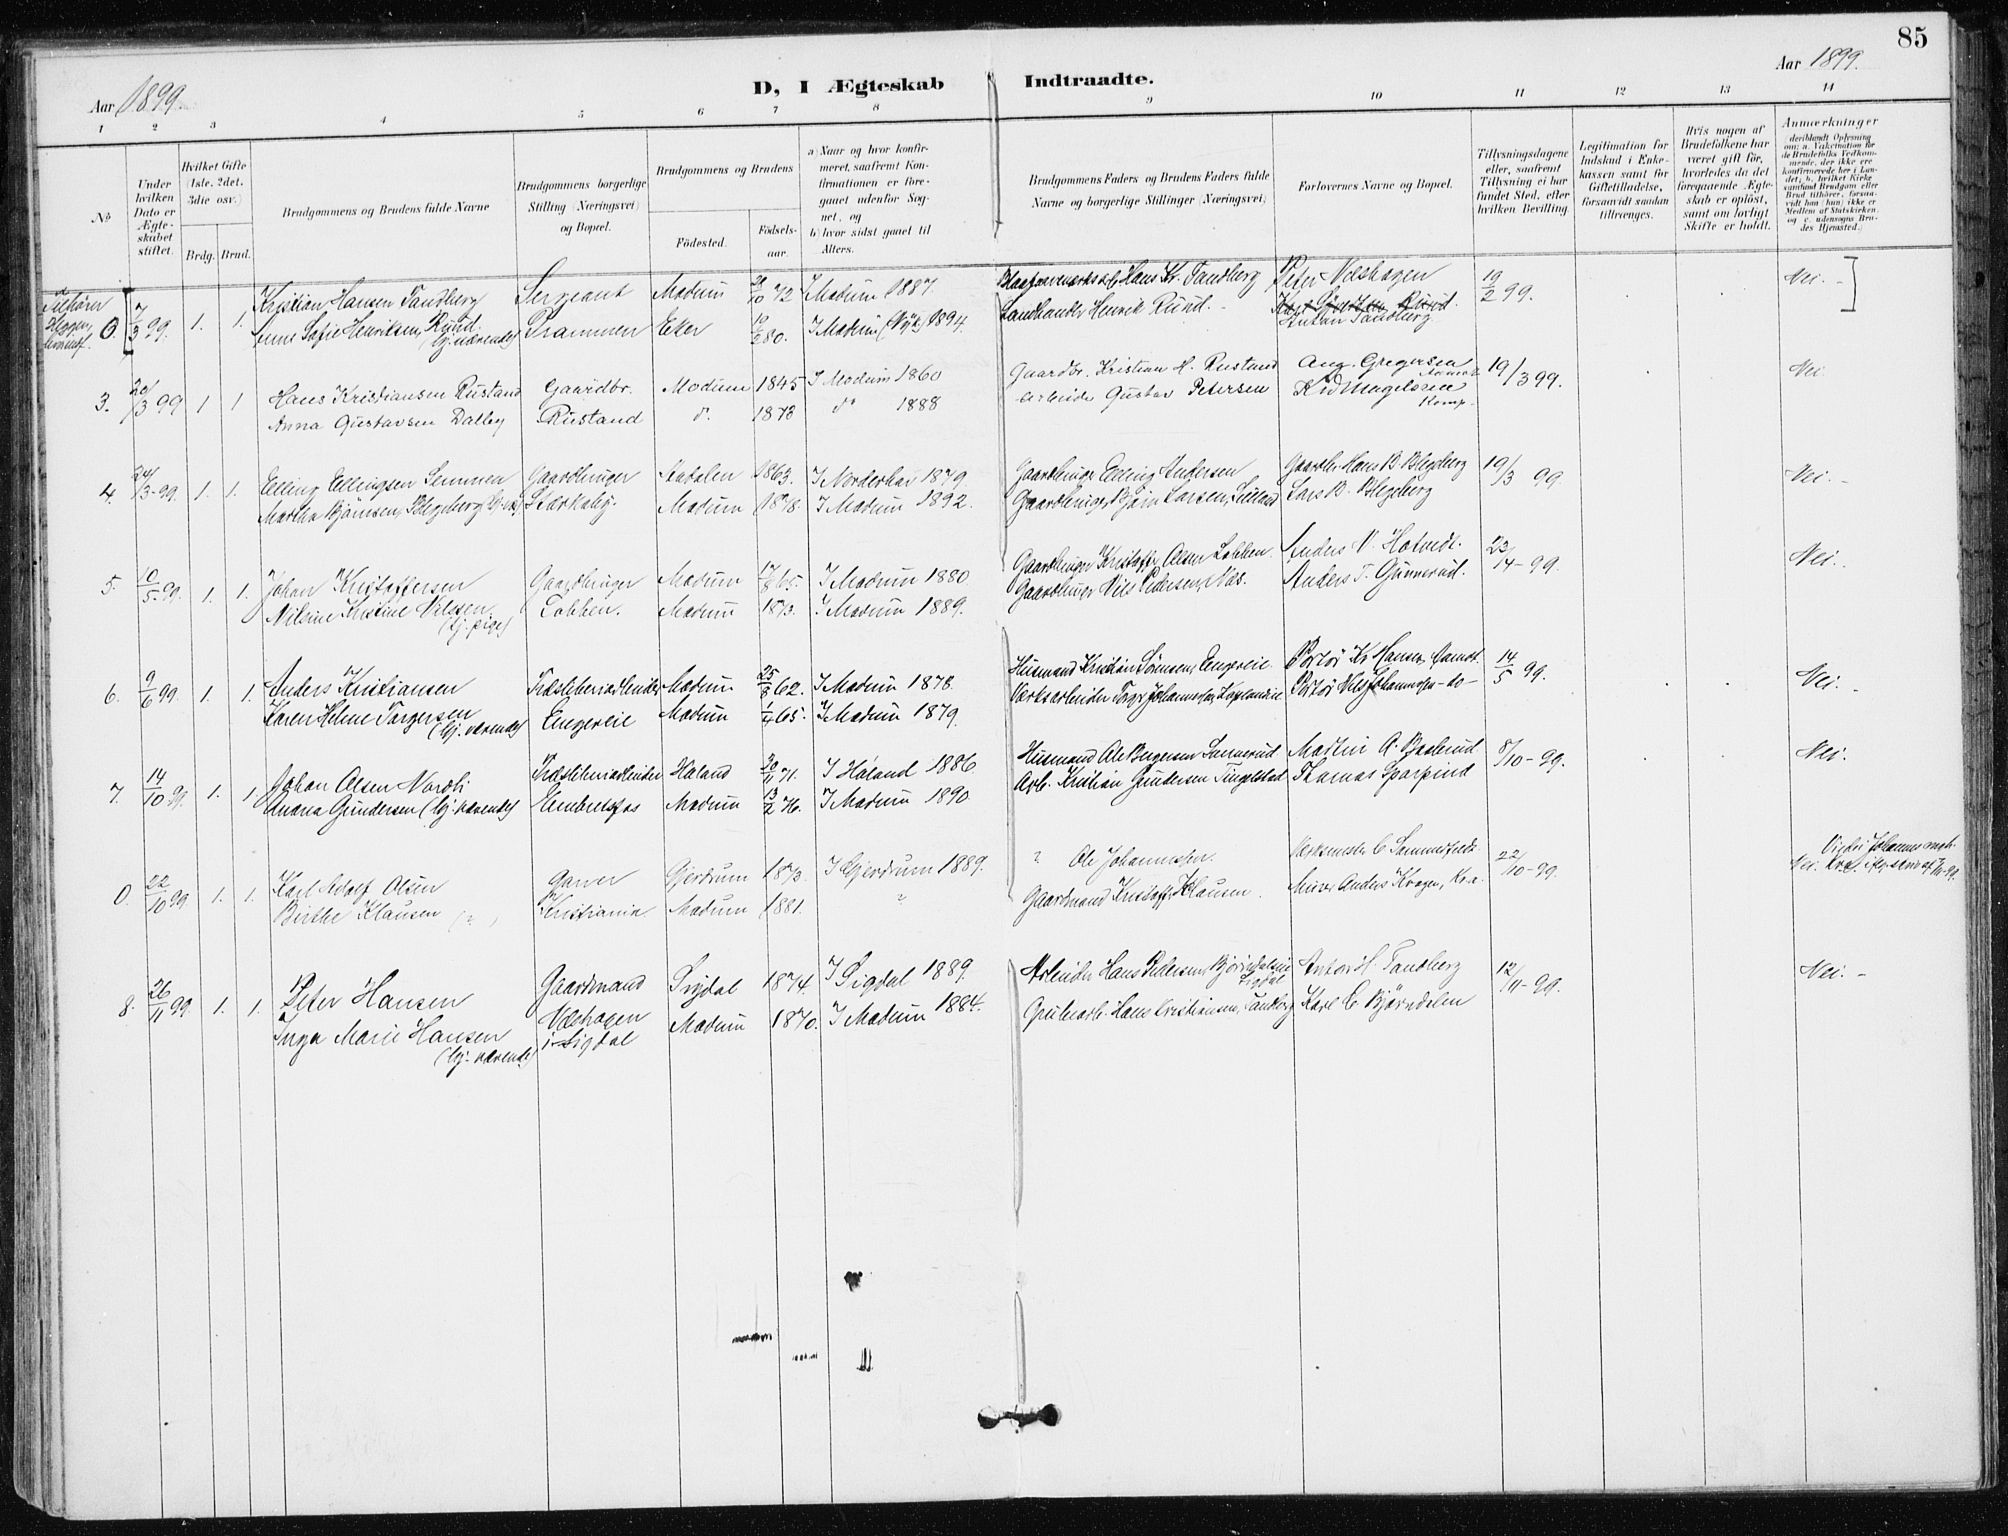 85
Aar 1899.
D, I Ægteskab Indtraadte.
Aar 1899.
1 2 3 4 5 6 7 8 9 10 11 12 13 14
No
Under hvilken Dato er Ægteskabet stiftet.
Hvilket Gifte (1ste. 2det. 3die osv.)
Brdg. Brud.
Brudgommens og Brudens fulde Navne
Brudgommens borgerlige Stilling (Næringsvei) og Bopæl.
Brudgommens og Brudens
Födested.
Födsels-aar.
a) Naar og hvor konfirmeret, saafremt Konfirmationen er foregaaet udenfor Sognet, og
b) hvor sidst gaaet til Alters.
Brudgommens Faders og Brudens Faders fulde Navne og borgerlige Stillinger (Næringsvei)
Forlovernes Navne og Bopæl.
Tillysningsdagene eller, saafremt Tillysning ei har fundet Sted, efter hvilken Bevilling.
Legitimation for Indskud i Enkekassen samt for Giftetilladelse, forsaavidt saadan tiltrænges.
Hvis nogen af Brudefolkene har været gift för, hvorledes da det foregaaende Ægteskab er oplöst, samt om lovligt Skifte er holdt.
Anmærkninger
(deriblandt Oplysning om: a. Vakcination for de Brudefolks Vedkommende, der ikke ere konfirmerede her i Landet, b. hvilket Kirkesamfund Brudgom eller Brud tilhörer, forsaavidt han (hun) ikke er Medlem af Statskirken, og c. udensogns Brudes Hjemsted.)
Tilhører
0. 7/3 99. 1. 1. Kristian Hansen Tandberg Sergeant Modum 29/10 72 I Modum 1887. Hans Kr. Tandberg Peter Næshagen 19/2 99. Nei. -
Anne Sofie Henriksen, Rund. (hj.værende) Drammen Eker 80. I Modum (Nyk.) 1894. Landhandler Henrik Rund. - Anton Tandberg
3. 20/3 99 1 1 Hans Kristiansen Rustand Gaardbr. Modum 1845 I Modum 1860 Gaardbr. Kristian H. Rustand Aug. Gregersen 19/3 99. Nei
Anna Gustavsen Dalby Rustand do. 1873 do 1888 Arbeider Gustav Petersen Kr. Magelssen
4. 24/3-99. 1. 1. Elling Ellingsen Semmen Gaardbruger 1863. I Norderhov 1879 Gaardbruger Elling Andersen Gaardbr. Hans B. Blegeberg 19/3 99 Nei. -
Martha Bjørnsen, Blegeberg Modum 1878. I Modum 1892. Gaardbruger Bjørn Larsen, Lars B. Blegeberg
5. 10/5-99. 1. 1. Johan Kristoffersen Gaardbruger Modum 17/8 65. I Modum 1880. Gaardbruger Kristoffer Olsen Lobben. Anders N. Hotvedt. 23/4-99. Nei.
Nilsine Kristine Nilssen. (hj. pige) Lobben. Modum 1873. I Modum 1889. Gaardbruger Nils Pedersen, Næs. Anders T. Gunnerud.
6. 9/6 99. 1. 1. Anders Kristiansen Træsliberiarbeider Modum 25/8 62. I Modum 1878. Husmand Kristian Sørensen, Engereie Kr. Hansen, 14/5 99. Nei.
Karen Helene Torgersen (hj. værende) Engereie Modum 1/4 65. I Modum 1879. Verksarbeider Torger Johannessen, Nils Johannessen - do -
7. 14/10 99. 1. 1. Johan Olsen Nordli Træsliberiarbeider Høland 20/11 71. I Høland 1886 Husmand Ole Borgersen Martin A. Braterud 8/10-99. Nei.
Gundersen (hj. værende) Embretsfos Modum 13/2 76. I Modum 1890. Arb. Kristian Gundersen Tingelstad Thomas Sparpind
0. 22/10 99 1. 1. Karl Adolf Olsen Garver Gjerdrum 1873. I Gjerdrum 1889. " Ole Johannessen. Verksmester C. Sommerfeldt 22/10-99. Nei.
Birthe Klausen Kristiania. Modum 1881. " Gaardmand Kristoffer Klausen. Murer Anders Kragen, Kr.a.
8. 26/11 99. 1. 1. Peter Hansen Gaardmand Sigdal 1874. I Sigdal 1889. Arbeider Hans Pedersen, Sigdal Anton H. Tandberg 12/11-99. Nei. -
Inga Marie Hansen (hj. værende) Næshagen i Sigdal Modum 1870. I Modum 1884. Grubearb. Hans Kristiansen, Tandberg Karl C. Bjørndalen